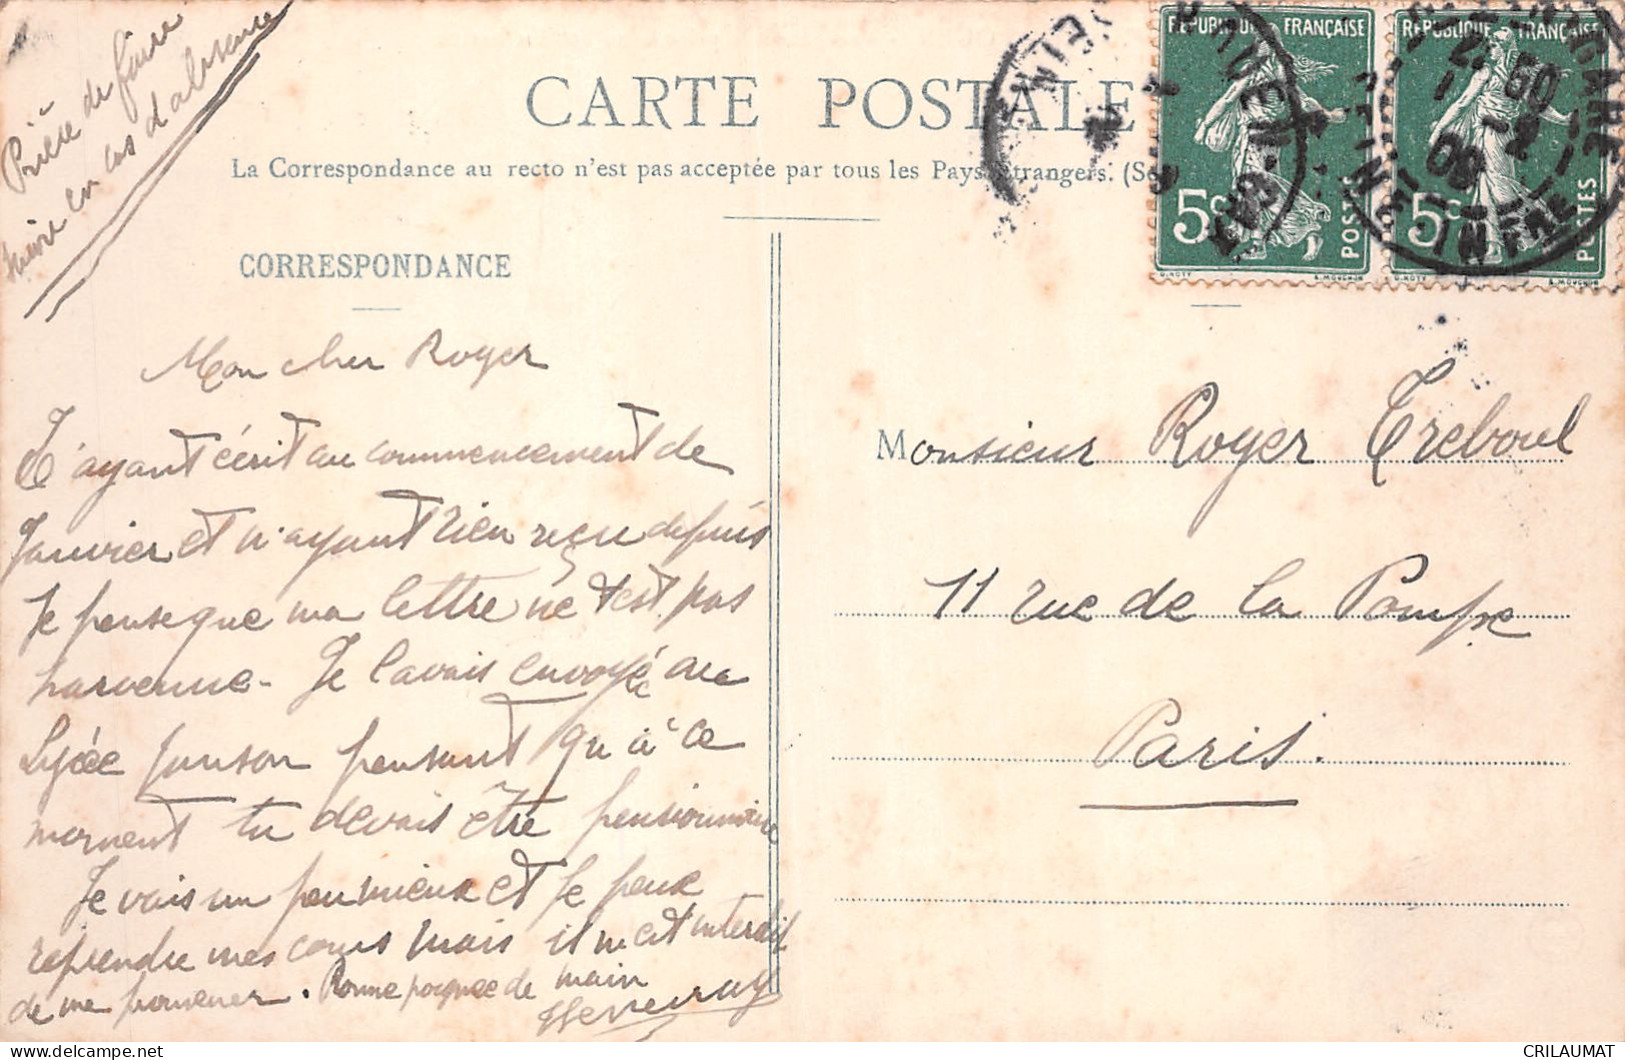 Prière de faire
suivre en cas d'absence
CARTE POSTALE
La Correspondance au recto n'est pas acceptée par tous les Pays Étrangers. (Se
CORRESPONDANCE
REPUBLIQUE FRANÇAISE
5c
POSTES
O. ROTY
E. MOUCHON
REPUBLIQUE FRANÇAISE
5c
POSTES
O. ROTY
E. MOUCHON
Mon cher Royer
T'ayant écrit au commencement de
Janvier et n'ayant rien reçu depuis
Je pense que ma lettre ne t'est pas
parvenue - Je l'avais envoyée au
Lycée Janson pensant qu'à ce
moment tu devais être pensionnaire
Je vais un peu mieux et je peux
reprendre mes cours mais il m'est interdit
de me promener. Bonne poignée de main
Monsieur Royer Treboul
11 rue de la Pompe
Paris.
CRILAUMAT